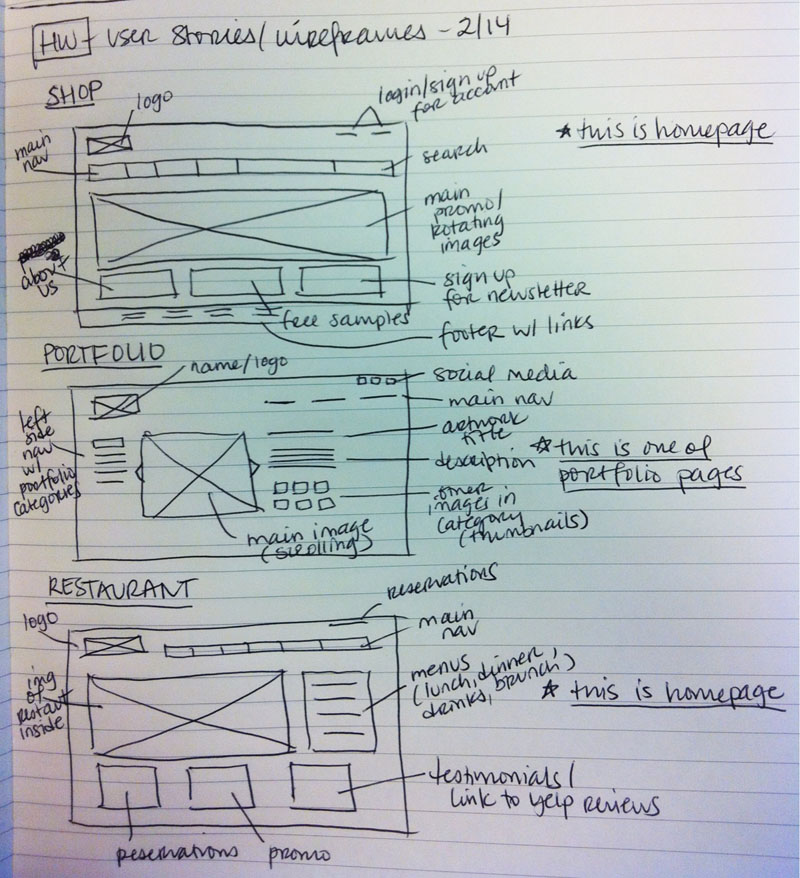 HW - User Stories/wireframes - 2/14
SHOP
logo
login/sign up
for account
* this is homepage
main
nav
search
main
promo/
rotating
images
about
us
sign up
for newsletter
free samples
footer w/ links
PORTFOLIO
name/logo
social media
main nav
left
side
nav
w/
portfolio
categories
artwork
title
description
* this is one of
portfolio pages
other
images in
category
(thumbnails)
main image
(scrolling)
RESTAURANT
reservations
logo
main
nav
img
of
restau
inside
menus
(lunch, dinner,
drinks, brunch)
* this is homepage
testimonials/
link to yelp reviews
reservations
promo